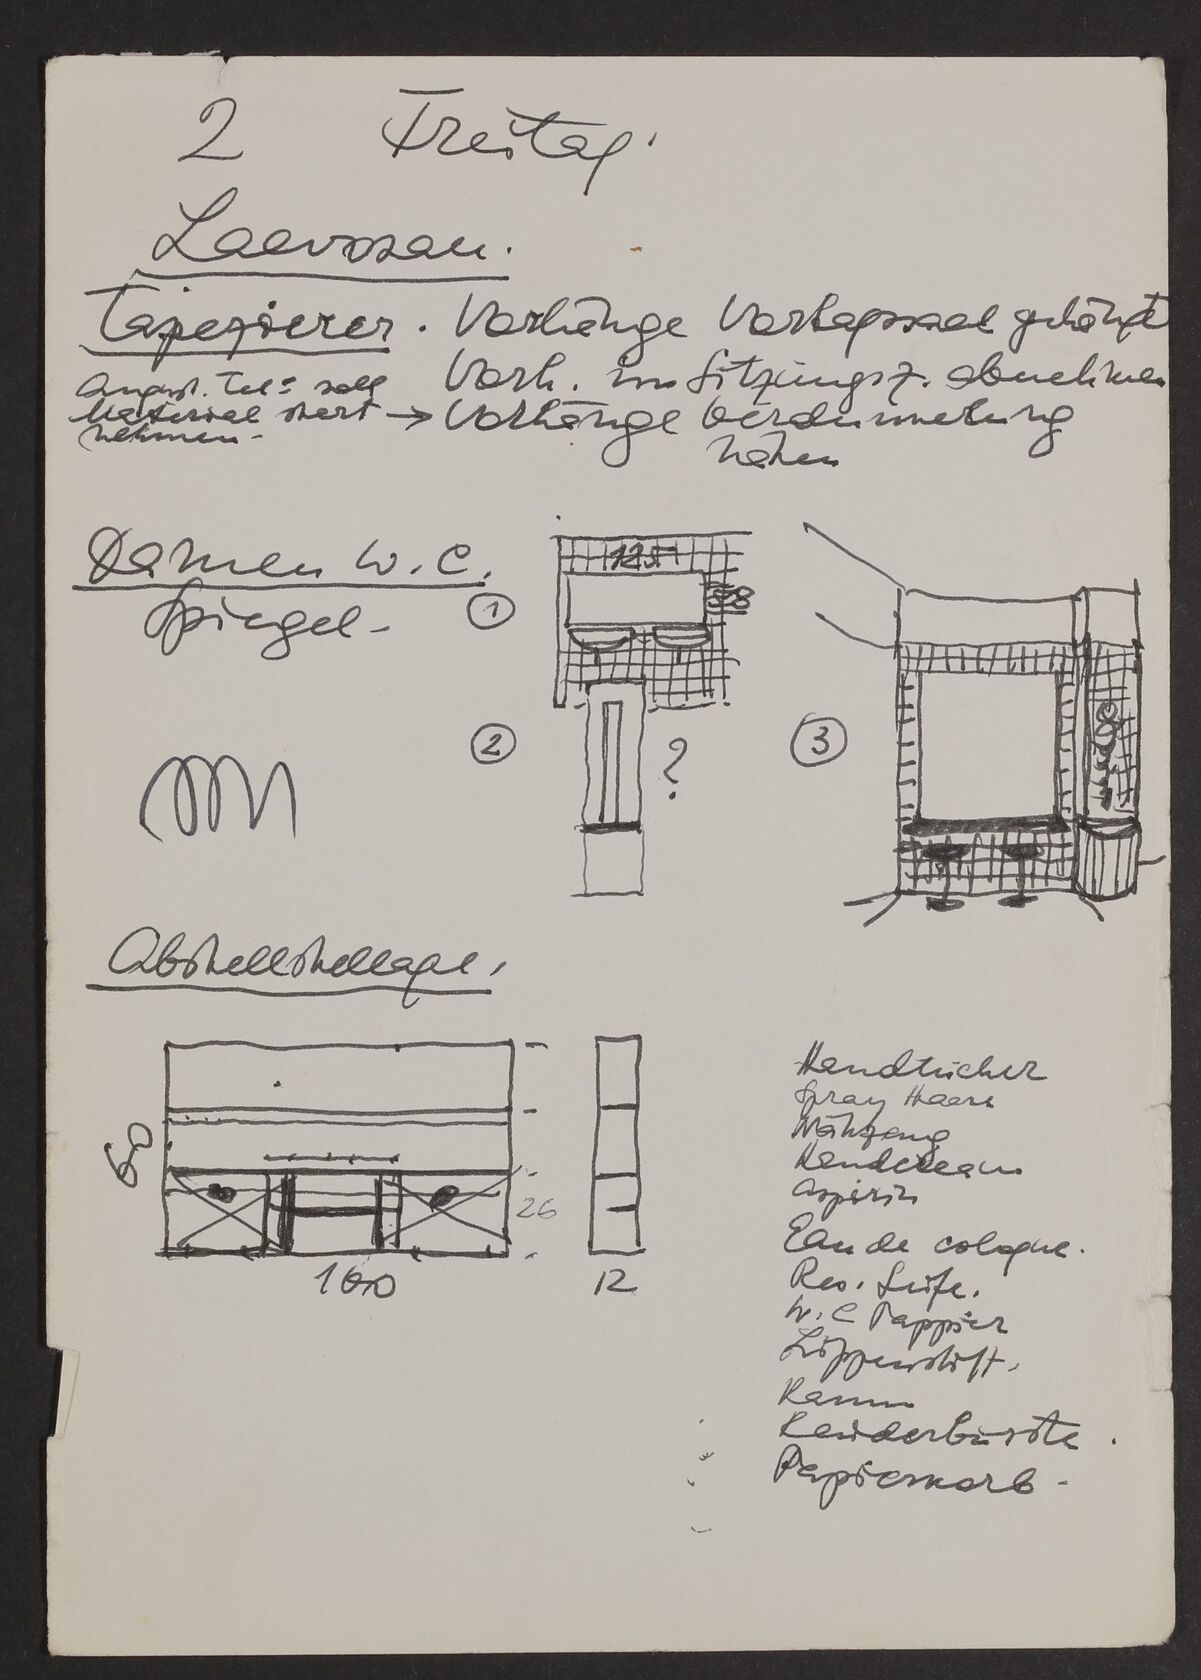 2 Freitag.
Laevosan.
Tapezierer. Vorhänge Vortragssaal gehängt
Vorh. im Sitzungsz. abnehmen
August. Tel: soll
Material statt → Vorhänge Verdunnelung
nehmen -
nähen
Damen W.C.
Spiegel -
1
125
58
2
?
3
Abstellstellage.
60
26
160
12
Handtücher
Spray Haare
Nähzeug
Handcream
Aspirin
Eau de cologne.
Res. Seife.
W.C Pappier
Lippenstift.
Kamm
Kleiderbürste.
Papierkorb -